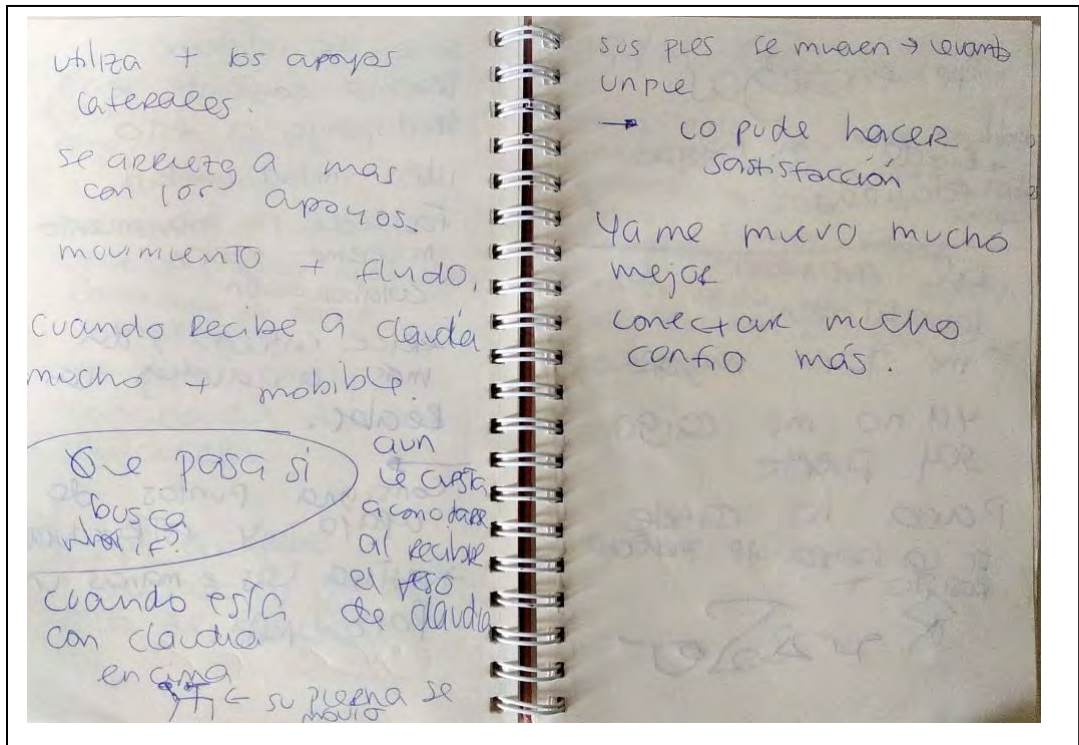 utiliza + los apoyos
laterales.
se arriezga a mas
con los apoyos.
movimiento + fluido.
Cuando Recibe a claudia
mucho + mobible.
Que pasa si
busca
aun
le cuesta
acomodarse
al recibir
el peso
de claudia
Cuando esta
con claudia
encima
← su pierna se
movio
sus pies se mueven → levanto
un pie
→ lo pude hacer
sastisfacción
Ya me muevo mucho
mejor
conectar mucho
confio más.